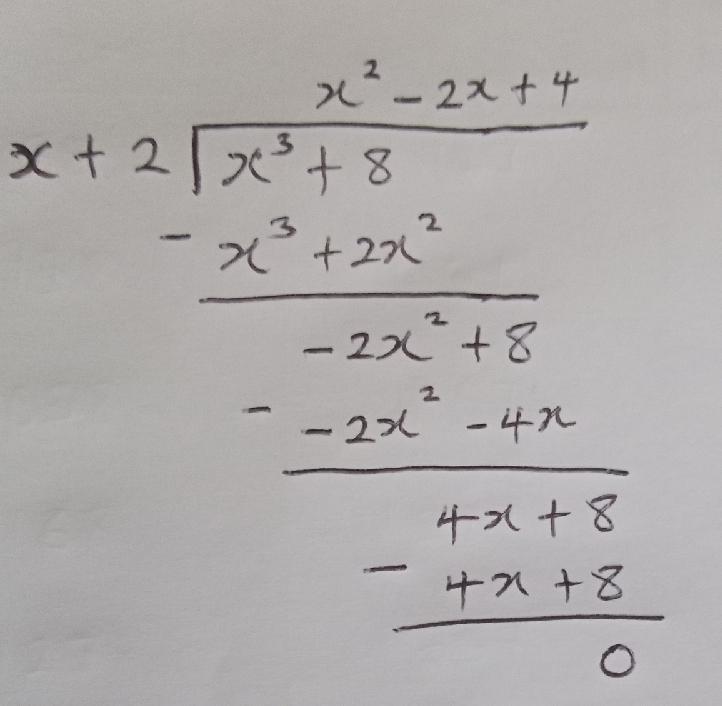 x² - 2x + 4
x + 2 √x³ + 8
- x³ + 2x²
- 2x² + 8
- - 2x² - 4x
4x + 8
- 4x + 8
0